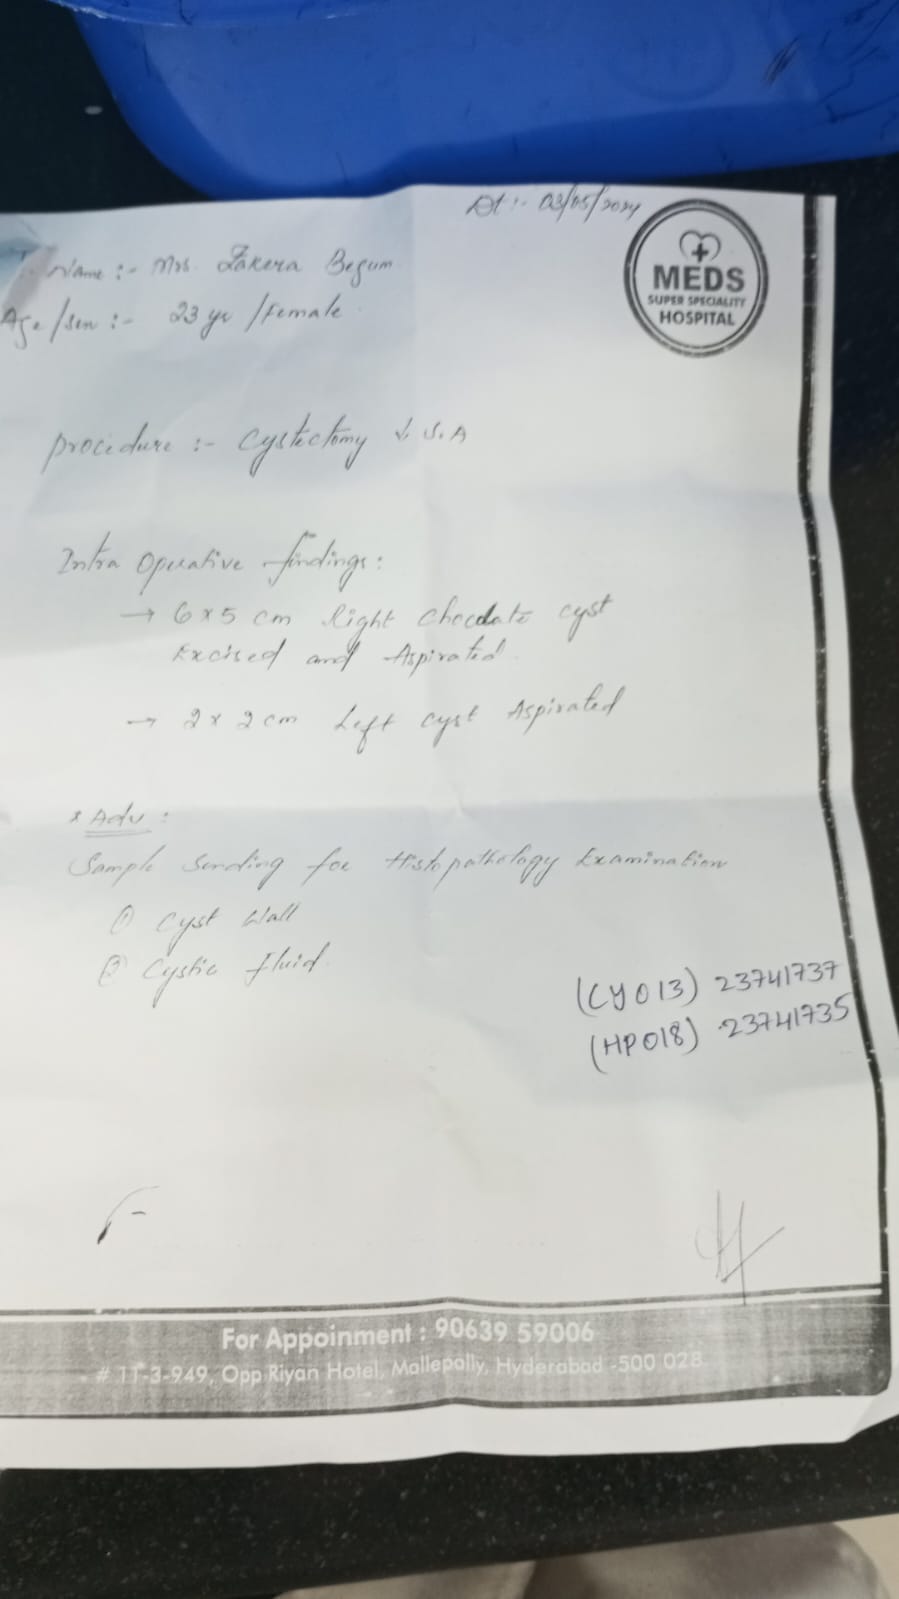 Dt :- 03/05/2024
MEDS
SUPER SPECIALITY
HOSPITAL
Name :- Mrs. Zakera Begum
Age/sex :- 23 yr /Female
Procedure :- Cystectomy ↓ S.A
Intra Operative findings:
→ 6x5 cm Right Chocolate cyst
Excised and Aspirated.
→ 2 x 2 cm Left cyst Aspirated
* Adv :
Sample Sending for Histopathology Examination
① Cyst Wall
② Cystic Fluid.
(CY013) 23741737
(HP018) 23741735
For Appoinment : 90639 59006
# 11-3-949, Opp Riyan Hotel, Mallepally, Hyderabad -500 028